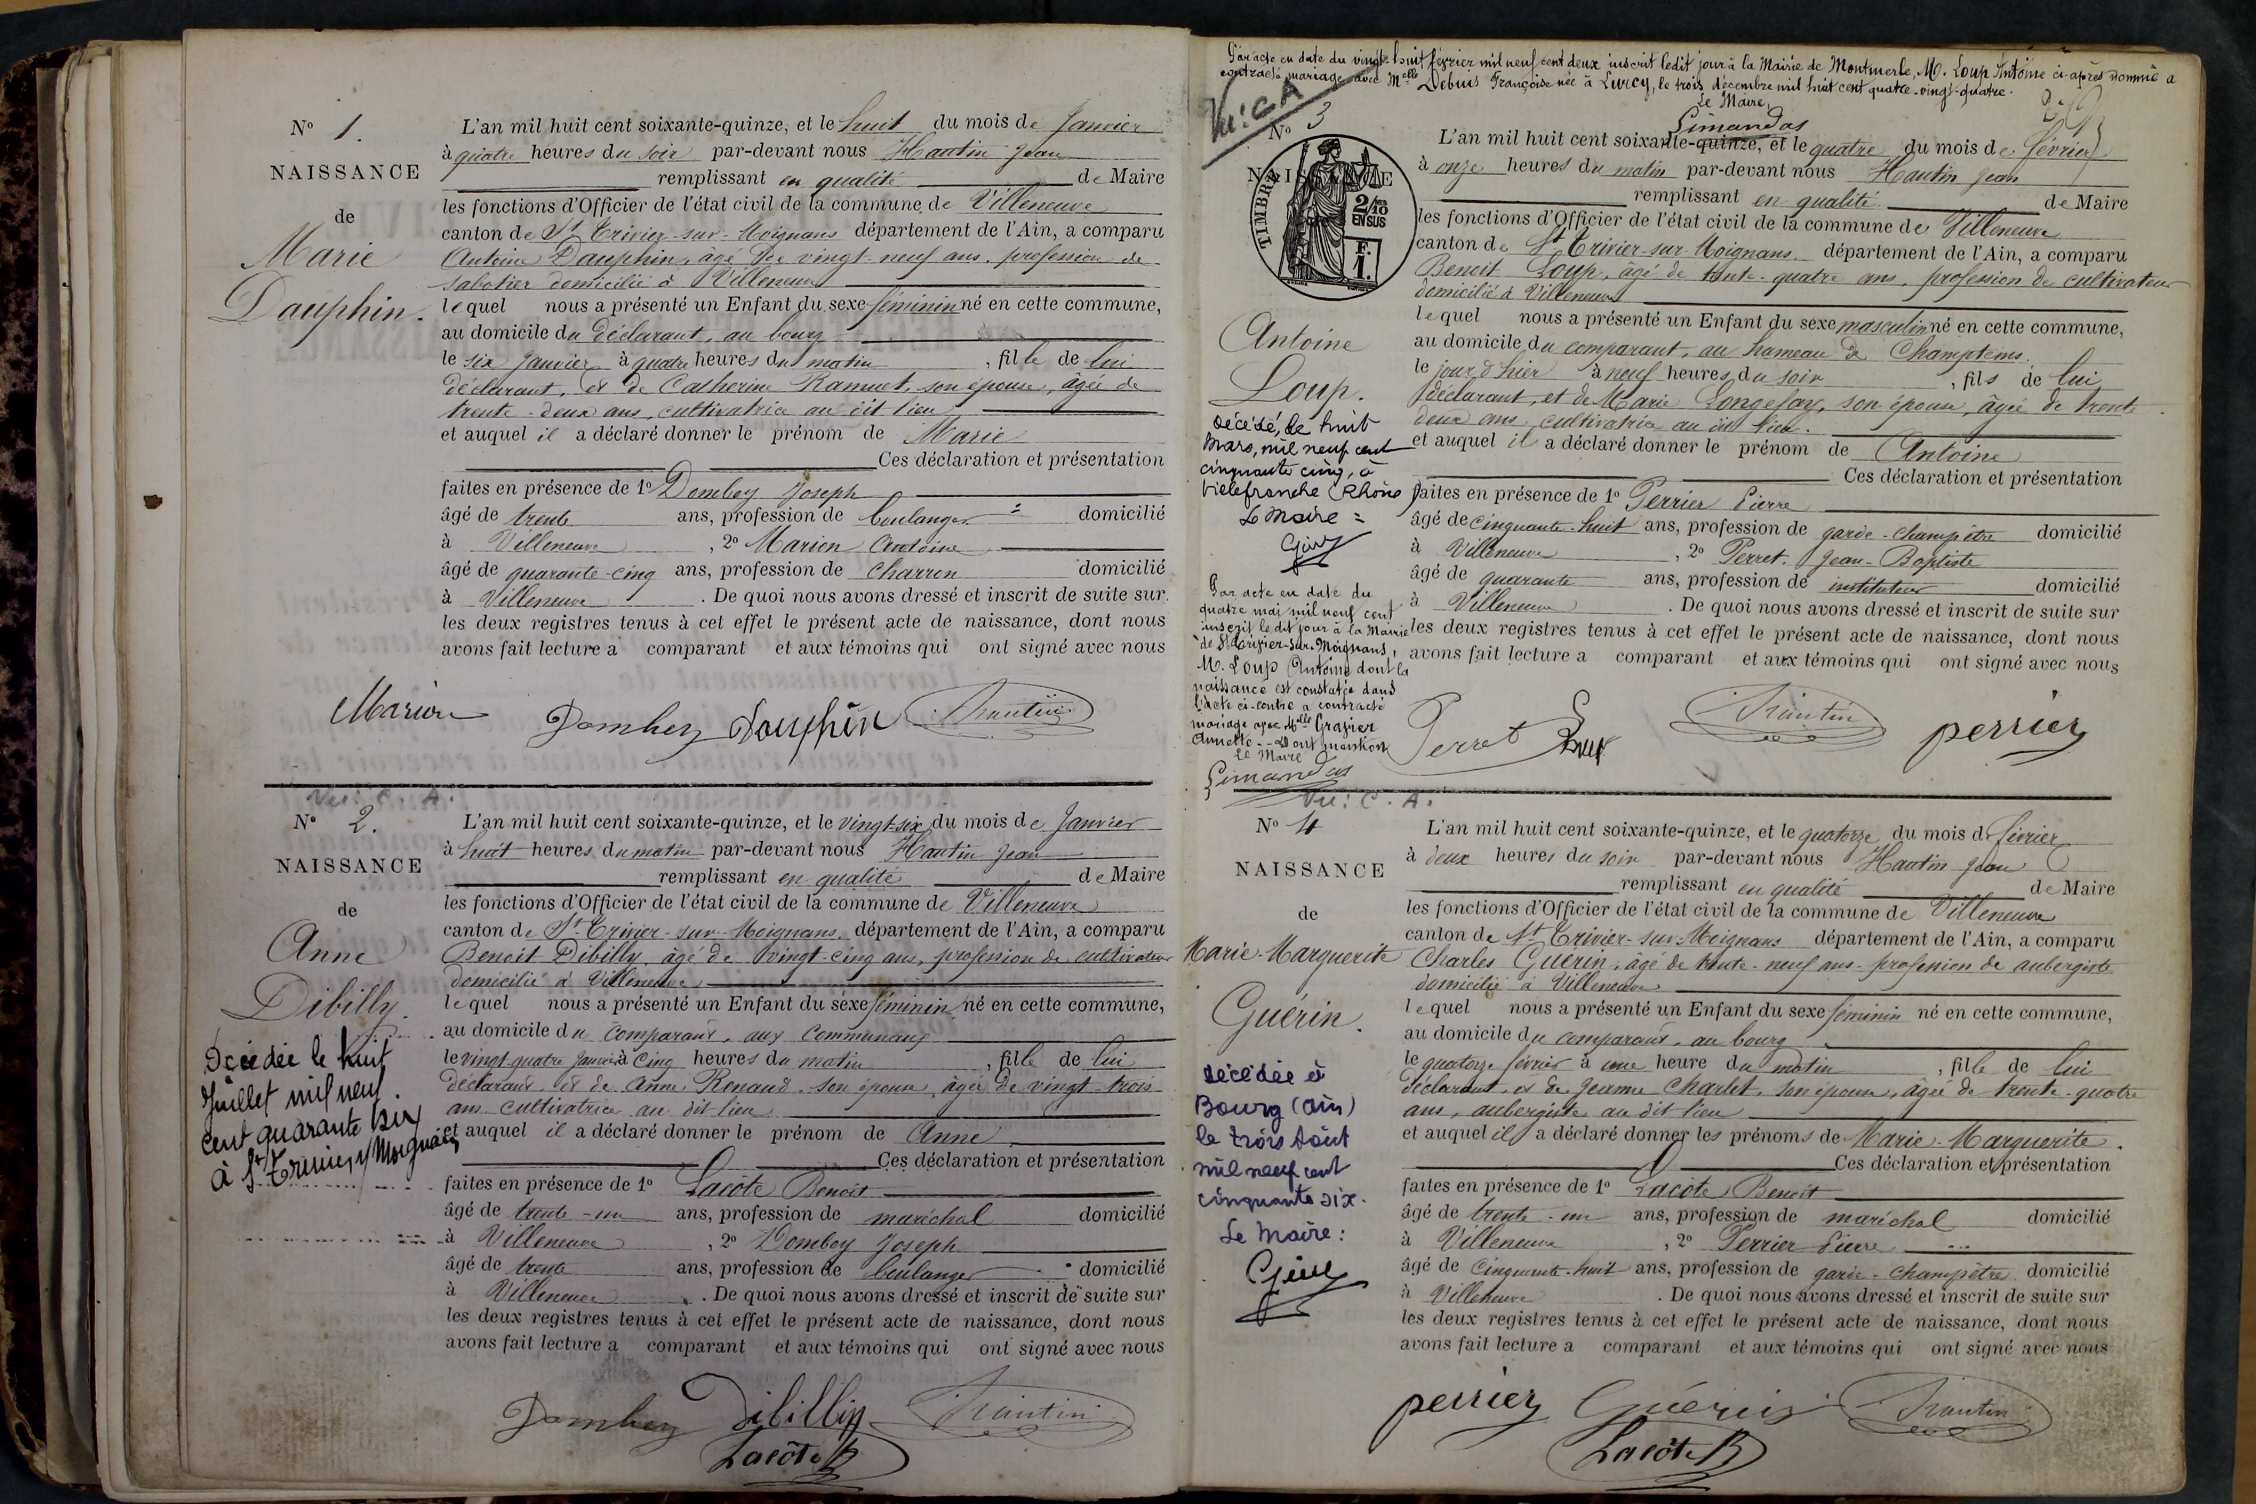 N° 1.
NAISSANCE
de
Marie
Dauphin.
L'an mil huit cent soixante-quinze, et le huit du mois de Janvier
à quatre heures du soir par-devant nous Hantin Jean
remplissant en qualité de Maire
les fonctions d'Officier de l'état civil de la commune de Villeneuve
canton de St Trivier-sur-Moignans département de l'Ain, a comparu
Antoine Dauphin, âgé de vingt-neuf ans, profession de
sabotier domicilié à Villeneuve
lequel nous a présenté un Enfant du sexe féminin né en cette commune,
au domicile du déclarant, au bourg
le six Janvier à quatre heures du matin, fille de lui
déclarant, et de Catherine Ramuet, son épouse, âgée de
trente-deux ans, cultivatrice au dit lieu
et auquel il a déclaré donner le prénom de Marie
Ces déclaration et présentation
faites en présence de 1° Dombey Joseph
âgé de trente ans, profession de boulanger domicilié
à Villeneuve, 2° Marion Antoine
âgé de quarante-cinq ans, profession de charron domicilié
à Villeneuve. De quoi nous avons dressé et inscrit de suite sur
les deux registres tenus à cet effet le présent acte de naissance, dont nous
avons fait lecture a comparant et aux témoins qui ont signé avec nous
Marion Dombey Dauphin Hantin
Vu: C. A.
N° 2.
NAISSANCE
de
Anne
Dibilly.
Décédée le huit
Juillet mil neuf
cent quarante six
à St Trivier s/ Moignans
L'an mil huit cent soixante-quinze, et le vingt-six du mois de Janvier
à huit heures du matin par-devant nous Hantin Jean
remplissant en qualité de Maire
les fonctions d'Officier de l'état civil de la commune de Villeneuve
canton de St Trivier-sur-Moignans, département de l'Ain, a comparu
Benoit Dibilly, âgé de vingt-cinq ans, profession de cultivateur
domicilié à Villeneuve
lequel nous a présenté un Enfant du sexe féminin né en cette commune,
au domicile du comparant, aux Communaux
le vingt-quatre Janvier à cinq heures du matin, fille de lui
déclarant et de Anne Renaud son épouse, âgée de vingt-trois
ans cultivatrice au dit lieu
et auquel il a déclaré donner le prénom de Anne
Ces déclaration et présentation
faites en présence de 1° Lacôte Benoit
âgé de trente-un ans, profession de maréchal domicilié
à Villeneuve, 2° Dombey Joseph
âgé de trente ans, profession de boulanger domicilié
à Villeneuve. De quoi nous avons dressé et inscrit de suite sur
les deux registres tenus à cet effet le présent acte de naissance, dont nous
avons fait lecture a comparant et aux témoins qui ont signé avec nous
Dombey Dibilly Hantin
Lacôte B
Par acte en date du vingt-huit février mil neuf cent deux inscrit ledit jour à la Mairie de Montmerle, M. Loup Antoine ci-après nommé a
contracté mariage avec Melle Debuis Françoise née à Lurcy, le trois décembre mil huit cent quatre-vingt-quatre.
Le Maire,
Limandas
Vu: C A
N° 3
NAISSANCE
TIMBRE
2/10
EN SUS
F.
1.
Antoine
Loup.
Décédé, le huit
Mars, mil neuf cent
cinquante cinq, à
Villefranche (Rhône)
Le Maire =
Par acte en date du
quatre mai mil neuf cent
inscrit ledit jour à la Mairie
de St Trivier-sur-Moignans,
M. Loup Antoine dont la
naissance est constatée dans
l'acte ci-contre a contracté
mariage avec Melle Grazier
Annette -- Dont mention
Le Maire
Limandas
L'an mil huit cent soixante-quinze, et le quatre du mois de Février
à onze heures du matin par-devant nous Hantin Jean
remplissant en qualité de Maire
les fonctions d'Officier de l'état civil de la commune de Villeneuve
canton de St Trivier-sur-Moignans département de l'Ain, a comparu
Benoit Loup, âgé de trente-quatre ans, profession de cultivateur
domicilié à Villeneuve
lequel nous a présenté un Enfant du sexe masculin né en cette commune,
au domicile du comparant, au hameau de Champtems.
le jour d'hier à neuf heures du soir, fils de lui
déclarant, et de Marie Longefay, son épouse, âgée de trente
deux ans, cultivatrice au dit lieu.
et auquel il a déclaré donner le prénom de Antoine
Ces déclaration et présentation
faites en présence de 1° Perrier Pierre
âgé de cinquante-huit ans, profession de garde-champêtre domicilié
à Villeneuve, 2° Perret Jean-Baptiste
âgé de quarante ans, profession de instituteur domicilié
à Villeneuve. De quoi nous avons dressé et inscrit de suite sur
les deux registres tenus à cet effet le présent acte de naissance, dont nous
avons fait lecture a comparant et aux témoins qui ont signé avec nous
Perret Loup Hantin perrier
Vu: C. A.
N° 4
NAISSANCE
de
Marie-Marguerite
Guérin.
Décédée à
Bourg (Ain)
le trois Août
mil neuf cent
cinquante six.
Le Maire:
L'an mil huit cent soixante-quinze, et le quatorze du mois de février
à deux heures du soir par-devant nous Hantin Jean
remplissant en qualité de Maire
les fonctions d'Officier de l'état civil de la commune de Villeneuve
canton de St Trivier-sur-Moignans département de l'Ain, a comparu
Charles Guérin, âgé de trente-neuf ans profession de aubergiste
domicilié à Villeneuve
lequel nous a présenté un Enfant du sexe féminin né en cette commune,
au domicile du comparant, au bourg
le quatorze février à une heure du matin, fille de lui
déclarant, et de Jeanne Charlet, son épouse, âgée de trente-quatre
ans, aubergiste au dit lieu
et auquel il a déclaré donner les prénoms de Marie-Marguerite.
Ces déclaration et présentation
faites en présence de 1° Lacôte Benoit
âgé de trente-un ans, profession de maréchal domicilié
à Villeneuve, 2° Perrier Pierre
âgé de cinquante-huit ans, profession de garde-champêtre domicilié
à Villeneuve. De quoi nous avons dressé et inscrit de suite sur
les deux registres tenus à cet effet le présent acte de naissance, dont nous
avons fait lecture a comparant et aux témoins qui ont signé avec nous
perrier Guérin Hantin
Lacôte B